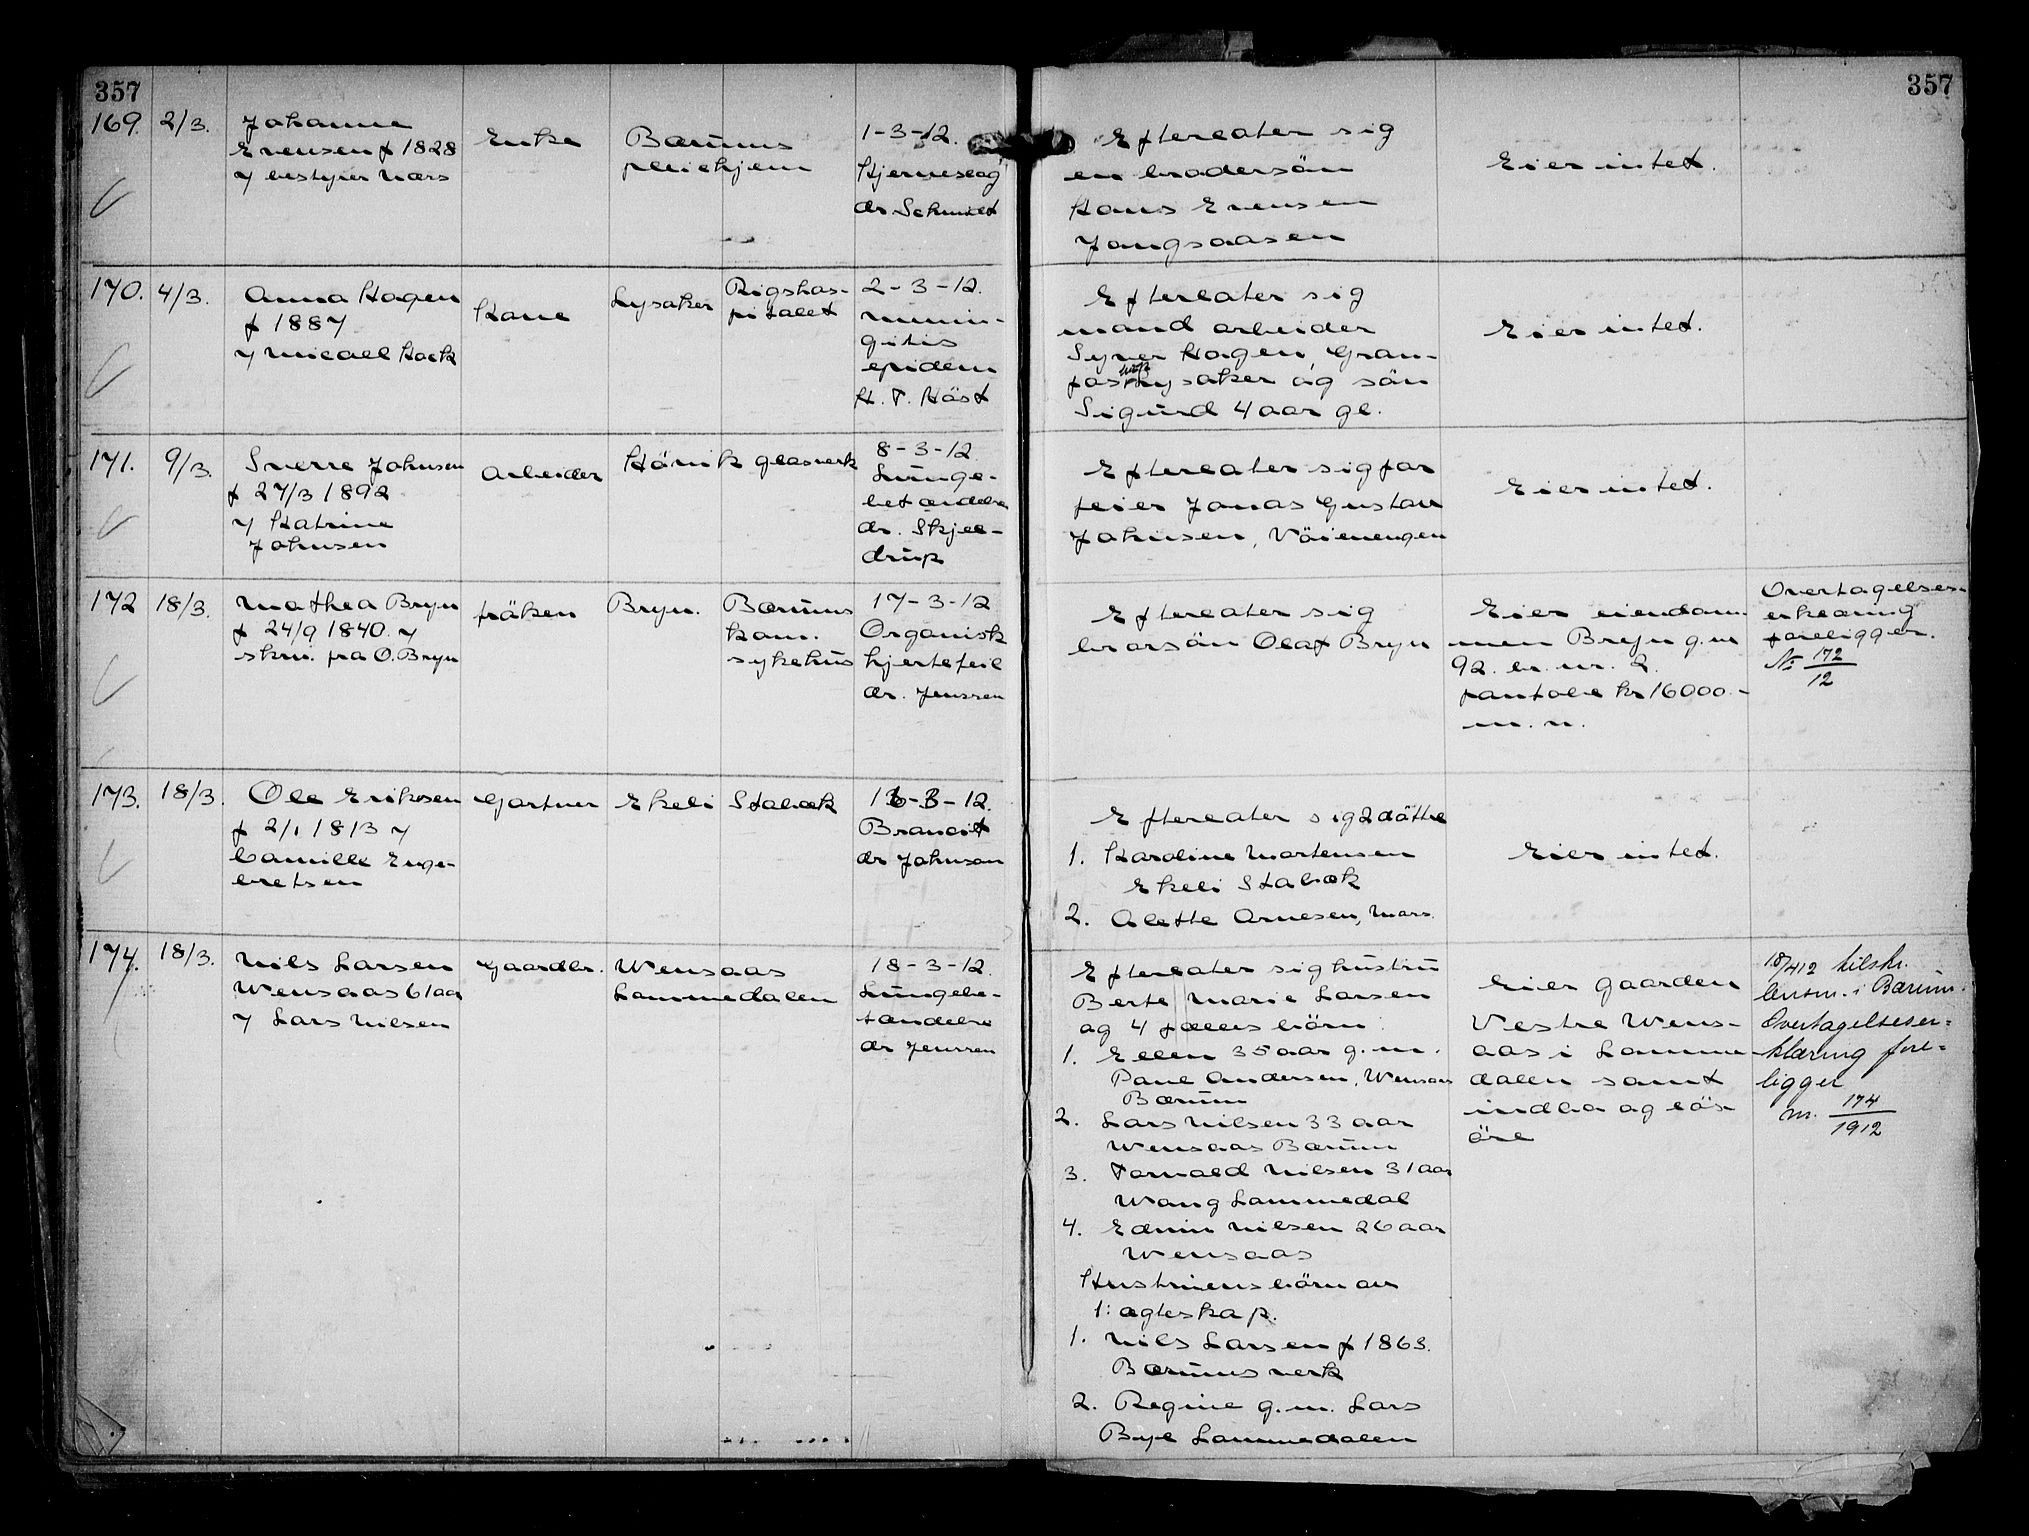 357
357
169.
2/3.
Johanne
Evensen f 1828
Enke
Bærums
pleiehjem
1-3-12.
Hjerneslag
dr Schmidt
Efterlater sig
en brodersön
Hans Evensen
Jongsaasen
Eier intet.
170.
4/3.
Anna Hagen
f 1887
Kone
Lysaker
Rigshos-
pitalet
2-3-12.
menin-
gitis
epidem
H. T. Höst
Efterlater sig
mand arbeider
Syver Hagen, Gran-
fos Lysaker og sön
Sigurd 4 aar gl.
Eier intet.
171.
9/3.
Sverre Johnsen
f 27/3 1892
Katrine
Johnsen
Arbeider
Hövik glasverk
8-3-12
Lunge-
betændelse
dr. Skjel-
drup
Efterlater sig far
feier Jonas Gustav
Johnsen, Vöienengen
Eier intet.
172
18/3.
Mathea Bryn
f 24/9 1840.
skrv. fra O. Bryn
fröken
Bryn.
Bærums
kom.
sykehus
17-3-12
Organisk
hjertefeil
dr. Jenssen
Efterlater sig
brorsön Olaf Bryn
Eier eiendom-
men Bryn g. nr
92. br. nr. 2.
pantole kr 16000.-
m. n.
Overtagelses-
erklæring
foreligger.
No 172
12
173.
18/3.
Ole Eriksen
f 2/1 1813
Camille Enge-
bretsen
Gartner
Ekeli
Stabæk
16-3-12.
Brancit
dr Johnson
Efterlater sig 2 döttre
1. Karoline Mortensen
Ekeli Stabæk
2. Alette Arnesen,
Eier intet.
174.
18/3.
Nils Larsen
Wensaas 61 aar
Lars Nilsen
Gaardbr.
Wensaas
Lommedalen
18-3-12.
Lungebe-
tændelse
dr Jenssen
Efterlater sig hustru
Berte Marie Larsen
og 4 fælles börn:
1. Ellen 35 aar g. m.
Paul Andersen, Wensaas
Bærum
2. Lars Nilsen 33 aar
Wensaas Bærum
3. Torvald Nilsen 31 aar
Wang Lommedal
4. Edvin Nilsen 26 aar
Wensaas
Hustruens börn av
1: ægteskap.
1. Nils Larsen f 1863.
Bærums verk
2. Regine g. m. Lars
Bye Lommedalen
Eier gaarden
Vestre Wens-
aas i Lomme-
dalen samt
indbo og lös-
öre
18/4 12 tilskr.
lensm. i Bærum.
Overtagelseser-
klæring fore-
ligger
nr. 174
1912